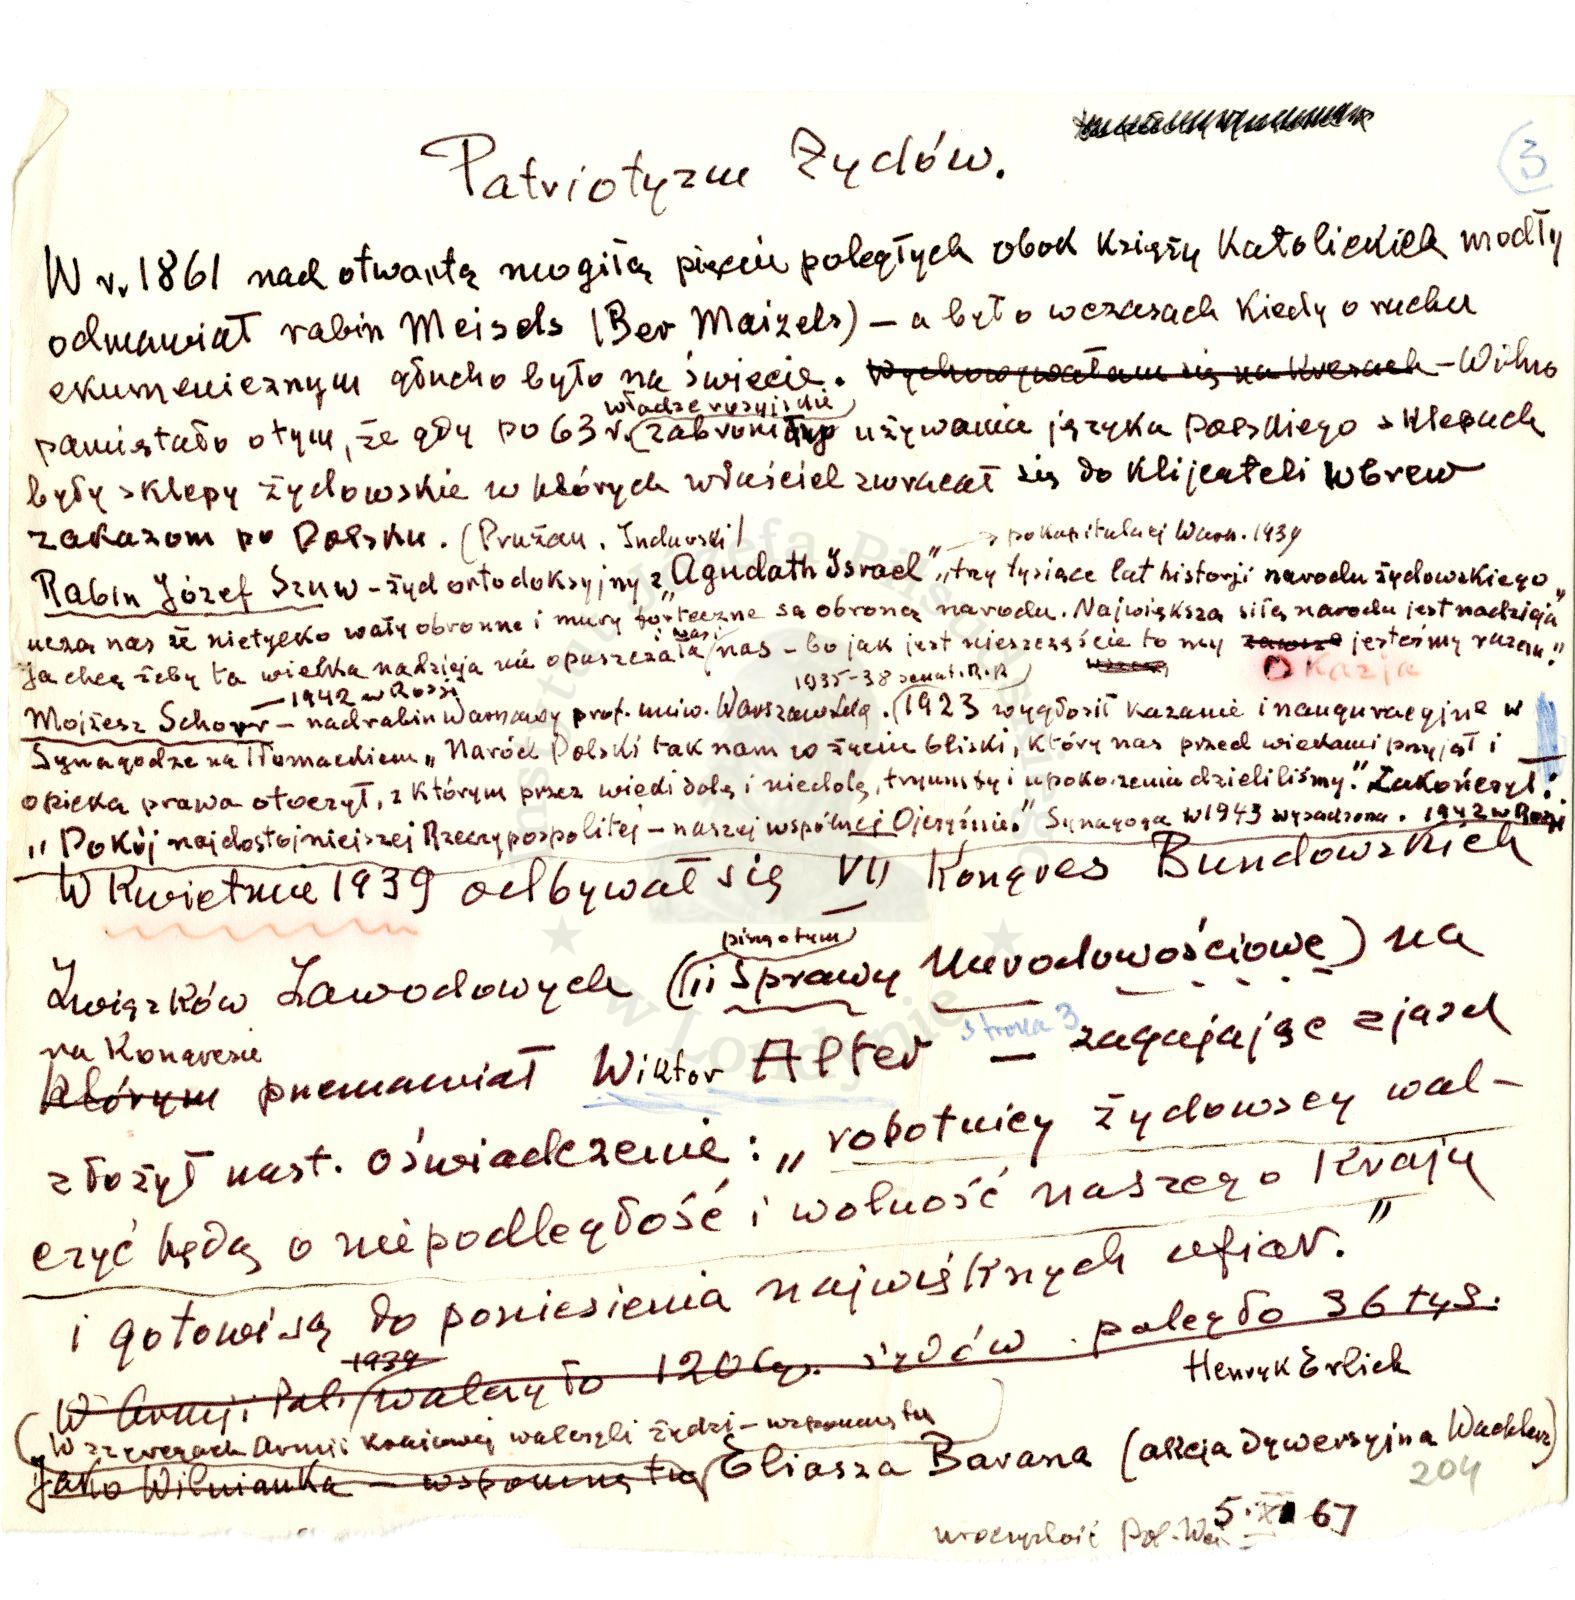 3
Patriotyzm Żydów.
W r. 1861 nad otwartą mogiłą pięciu poległych obok księży Katolickich modły
odmawiał rabin Meisels (Ber Maizels) – a było wczasach Kiedy o ruchu
ekumenicznym głucho było na świecie. Wychowywałam się na Kresach – Wilno
władze rosyjskie
pamiętało o tym, że gdy po 63 r. zabroniły używania języka Polskiego w sklepach
były sklepy żydowskie w których właściciel zwracał się do Klijenteli wbrew
zakazom po Polsku. (Prużan, Indurski)
→ po kapitulacji Warsz. 1939
Rabin Józef Szuw – żyd ortodoksyjny z "Agudath Israel" "trzy tysiące lat historji narodu żydowskiego
uczą nas że nietylko wały obronne i mury forteczne są obroną narodu. Największą siłą narodu jest nadzieja"
i was i
Ja chcę żeby ta wielka nadzieja nie opuszczała nas – bo jak jest nieszczęście to my zawsze jesteśmy razem."
Okazja
– 1942 w Rosji
1935-38 senat. R.P.
Mojżesz Schorr – nadrabin Warszawy prof. uniw. Warszawskiego. (1923 wygłosił kazanie inauguracyjne w
Synagodze na Tłomackiem „Naród Polski tak nam w życiu bliski, który nas przed wiekami przyjął i
opieką prawa otoczył, z którym przez wieki dolę i niedolę, tryumfy i upokorzenia dzieliliśmy." Zakończył:
„Pokój najdostojniejszej Rzeczypospolitej – naszej wspólnej Ojczyźnie." Synagoga w 1943 wysadzona. 1942 w Rosji
W Kwietniu 1939 odbywał się VII Kongres Bundowskich
pismo tum
Związków Zawodowych ("Sprawy Narodowościowe") na
strona 3
na Kongresie
którym przemawiał Wiktor Alter – zagajając zjazd
złożył nast. oświadczenie: „robotnicy żydowscy wal-
czyć będą o niepodległość i wolność naszego Kraju
i gotowi są do poniesienia najwiękrzych ofiar."
1939
W Armji Pol. walczyło 120 tys. żydów . poległo 36 tys.
Henryk Erlich
W szeregach Armii Krajowej walczyli żydzi – wspomnę tu
Jako Wilnianka – wspomnę tu Eliasza Barana (akcja dywersyjna Wachlarz)
204
uroczystość Pol. 5. XI 67